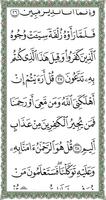 وَإِنَّمَآ أَنَا۠ نَذِيرٌ مُّبِينٌ ٢٦
فَلَمَّا رَأَوْهُ زُلْفَةً سِيٓـَٔتْ وُجُوهُ
ٱلَّذِينَ كَفَرُوا۟ وَقِيلَ هَٰذَا ٱلَّذِى كُنتُم
بِهِۦ تَدَّعُونَ ٢٧ قُلْ أَرَءَيْتُمْ إِنْ
أَهْلَكَنِىَ ٱللَّهُ وَمَن مَّعِىَ أَوْ رَحِمَنَا
فَمَن يُجِيرُ ٱلْكَٰفِرِينَ مِنْ عَذَابٍ
أَلِيمٍ ٢٨ قُلْ هُوَ ٱلرَّحْمَٰنُ ءَامَنَّا بِهِۦ
وَعَلَيْهِ تَوَكَّلْنَا فَسَتَعْلَمُونَ مَنْ